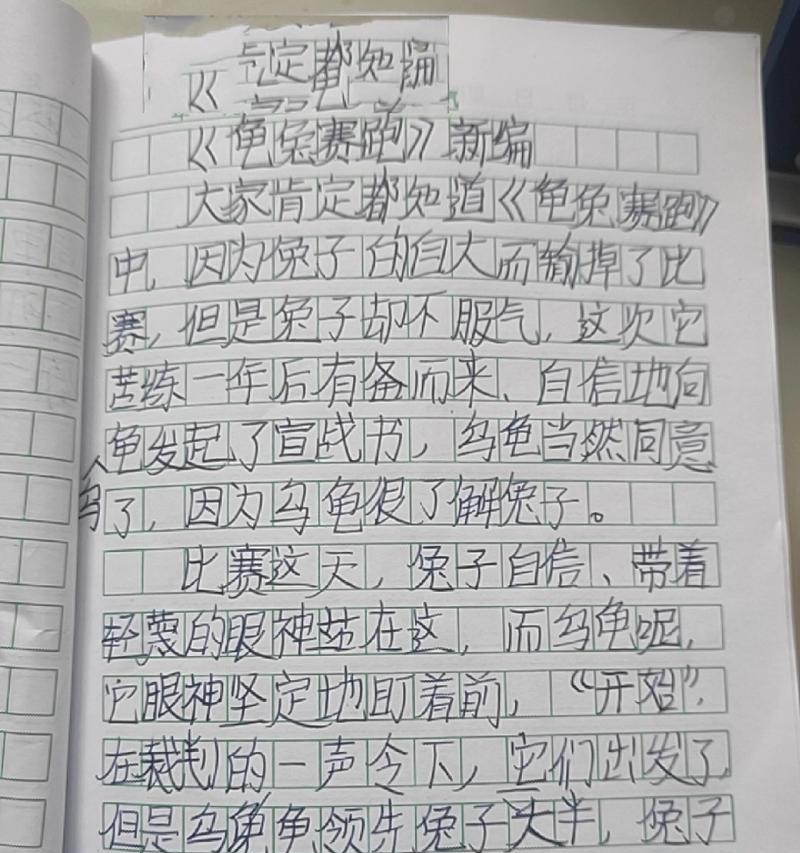 《 肯定都知
《龟兔赛跑》新编
大家肯定都知道《龟兔赛跑》
中，因为兔子的自大而输掉了比
赛，但是兔子却不服气，这次它
苦练一年后有备而来、自信地向
乌龟发起了宣战书，乌龟当然同意
了，因为乌龟很了解兔子。
比赛这天，兔子自信、带着
轻蔑的眼神站在这，而乌龟呢，
它眼神坚定地盯着前，“开始”，
在裁判的一声令下，它们出发了
但是乌龟领先兔子大半，兔子